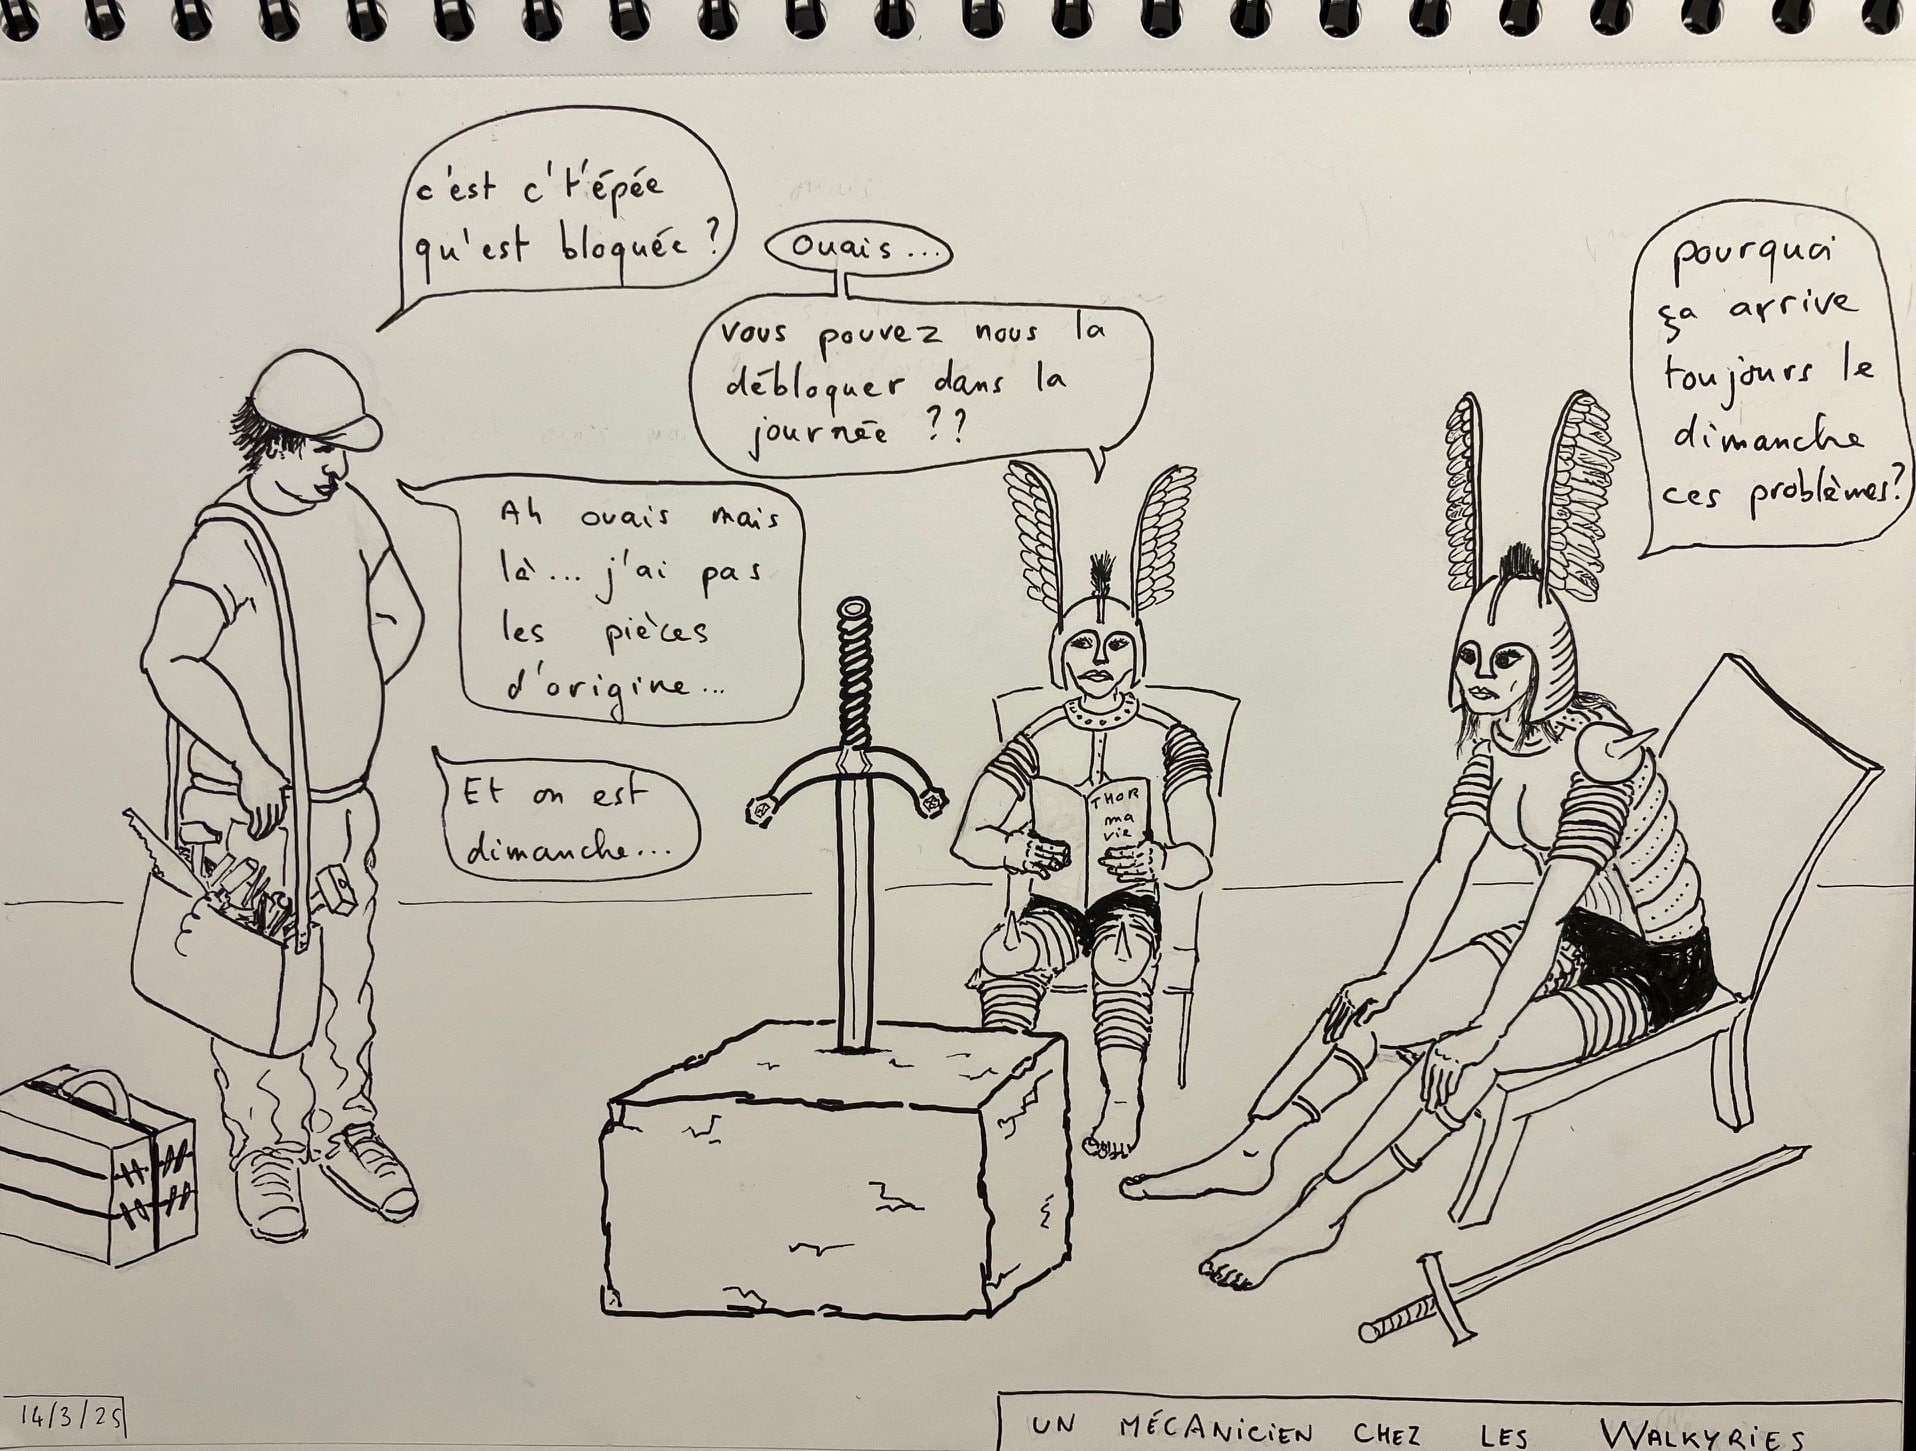 c'est c't'épée
qu'est bloquée ?
Ouais...
vous pouvez nous la
débloquer dans la
journée ??
Ah ouais mais
là... j'ai pas
les pièces
d'origine...
Et on est
dimanche...
pourquoi
ça arrive
toujours le
dimanche
ces problèmes?
THOR
ma
vie
14/3/25
UN MÉCANICIEN CHEZ LES WALKYRIES